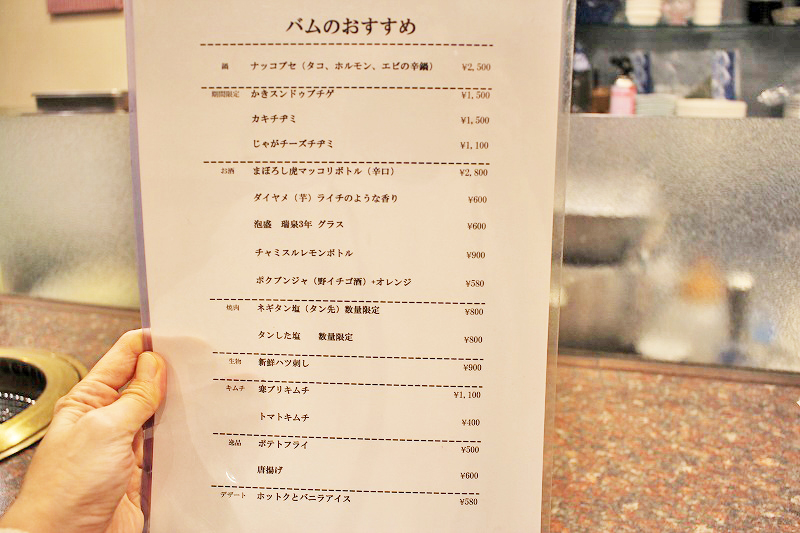 バムのおすすめ
鍋 ナッコプセ（タコ、ホルモン、エビの辛鍋） ¥2,500
期間限定 かきスンドゥブチゲ ¥1,500
カキチヂミ ¥1,500
じゃがチーズチヂミ ¥1,100
お酒 まぼろし虎マッコリボトル（辛口） ¥2,800
ダイヤメ（芋）ライチのような香り ¥600
泡盛 瑞泉3年 グラス ¥600
チャミスルレモンボトル ¥900
ボクブンジャ（野イチゴ酒）+オレンジ ¥580
焼肉 ネギタン塩（タン先）数量限定 ¥800
タンした塩 数量限定 ¥800
生物 新鮮ハツ刺し ¥900
キムチ 寒ブリキムチ ¥1,100
トマトキムチ ¥400
逸品 ポテトフライ ¥500
唐揚げ ¥600
デザート ホットクとバニラアイス ¥580